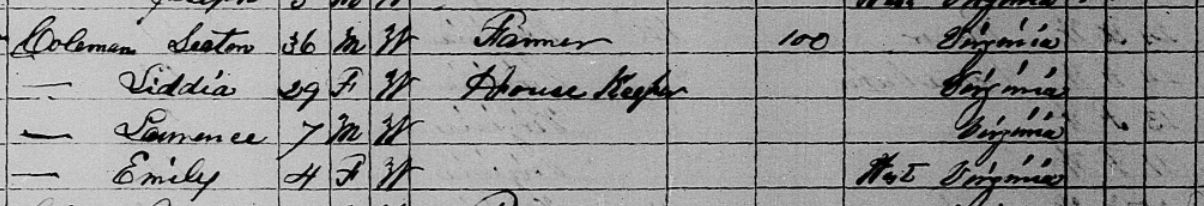 5 M W West Virginia
Coleman Seaton 36 M W Farmer 100 Virginia
— Liddia 29 F W House Keeper Virginia
— Lawrence 7 M W Virginia
— Emily 4 F W West Virginia